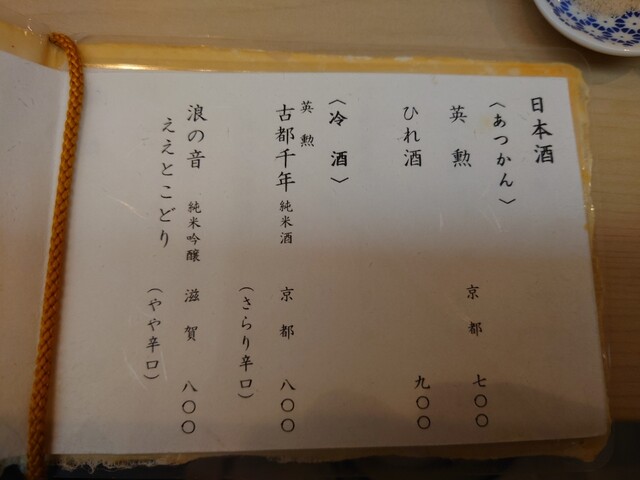 日本酒
〈あつかん〉
英勲 京都 七〇〇
ひれ酒 九〇〇
〈冷酒〉
英勲
古都千年 純米酒 京都 八〇〇
(さらり辛口)
浪の音 純米吟醸 滋賀 八〇〇
ええとこどり
(やや辛口)